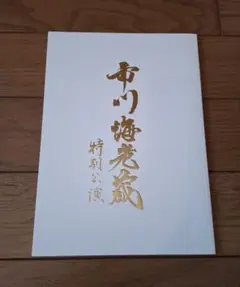 市川海老蔵
特別公演